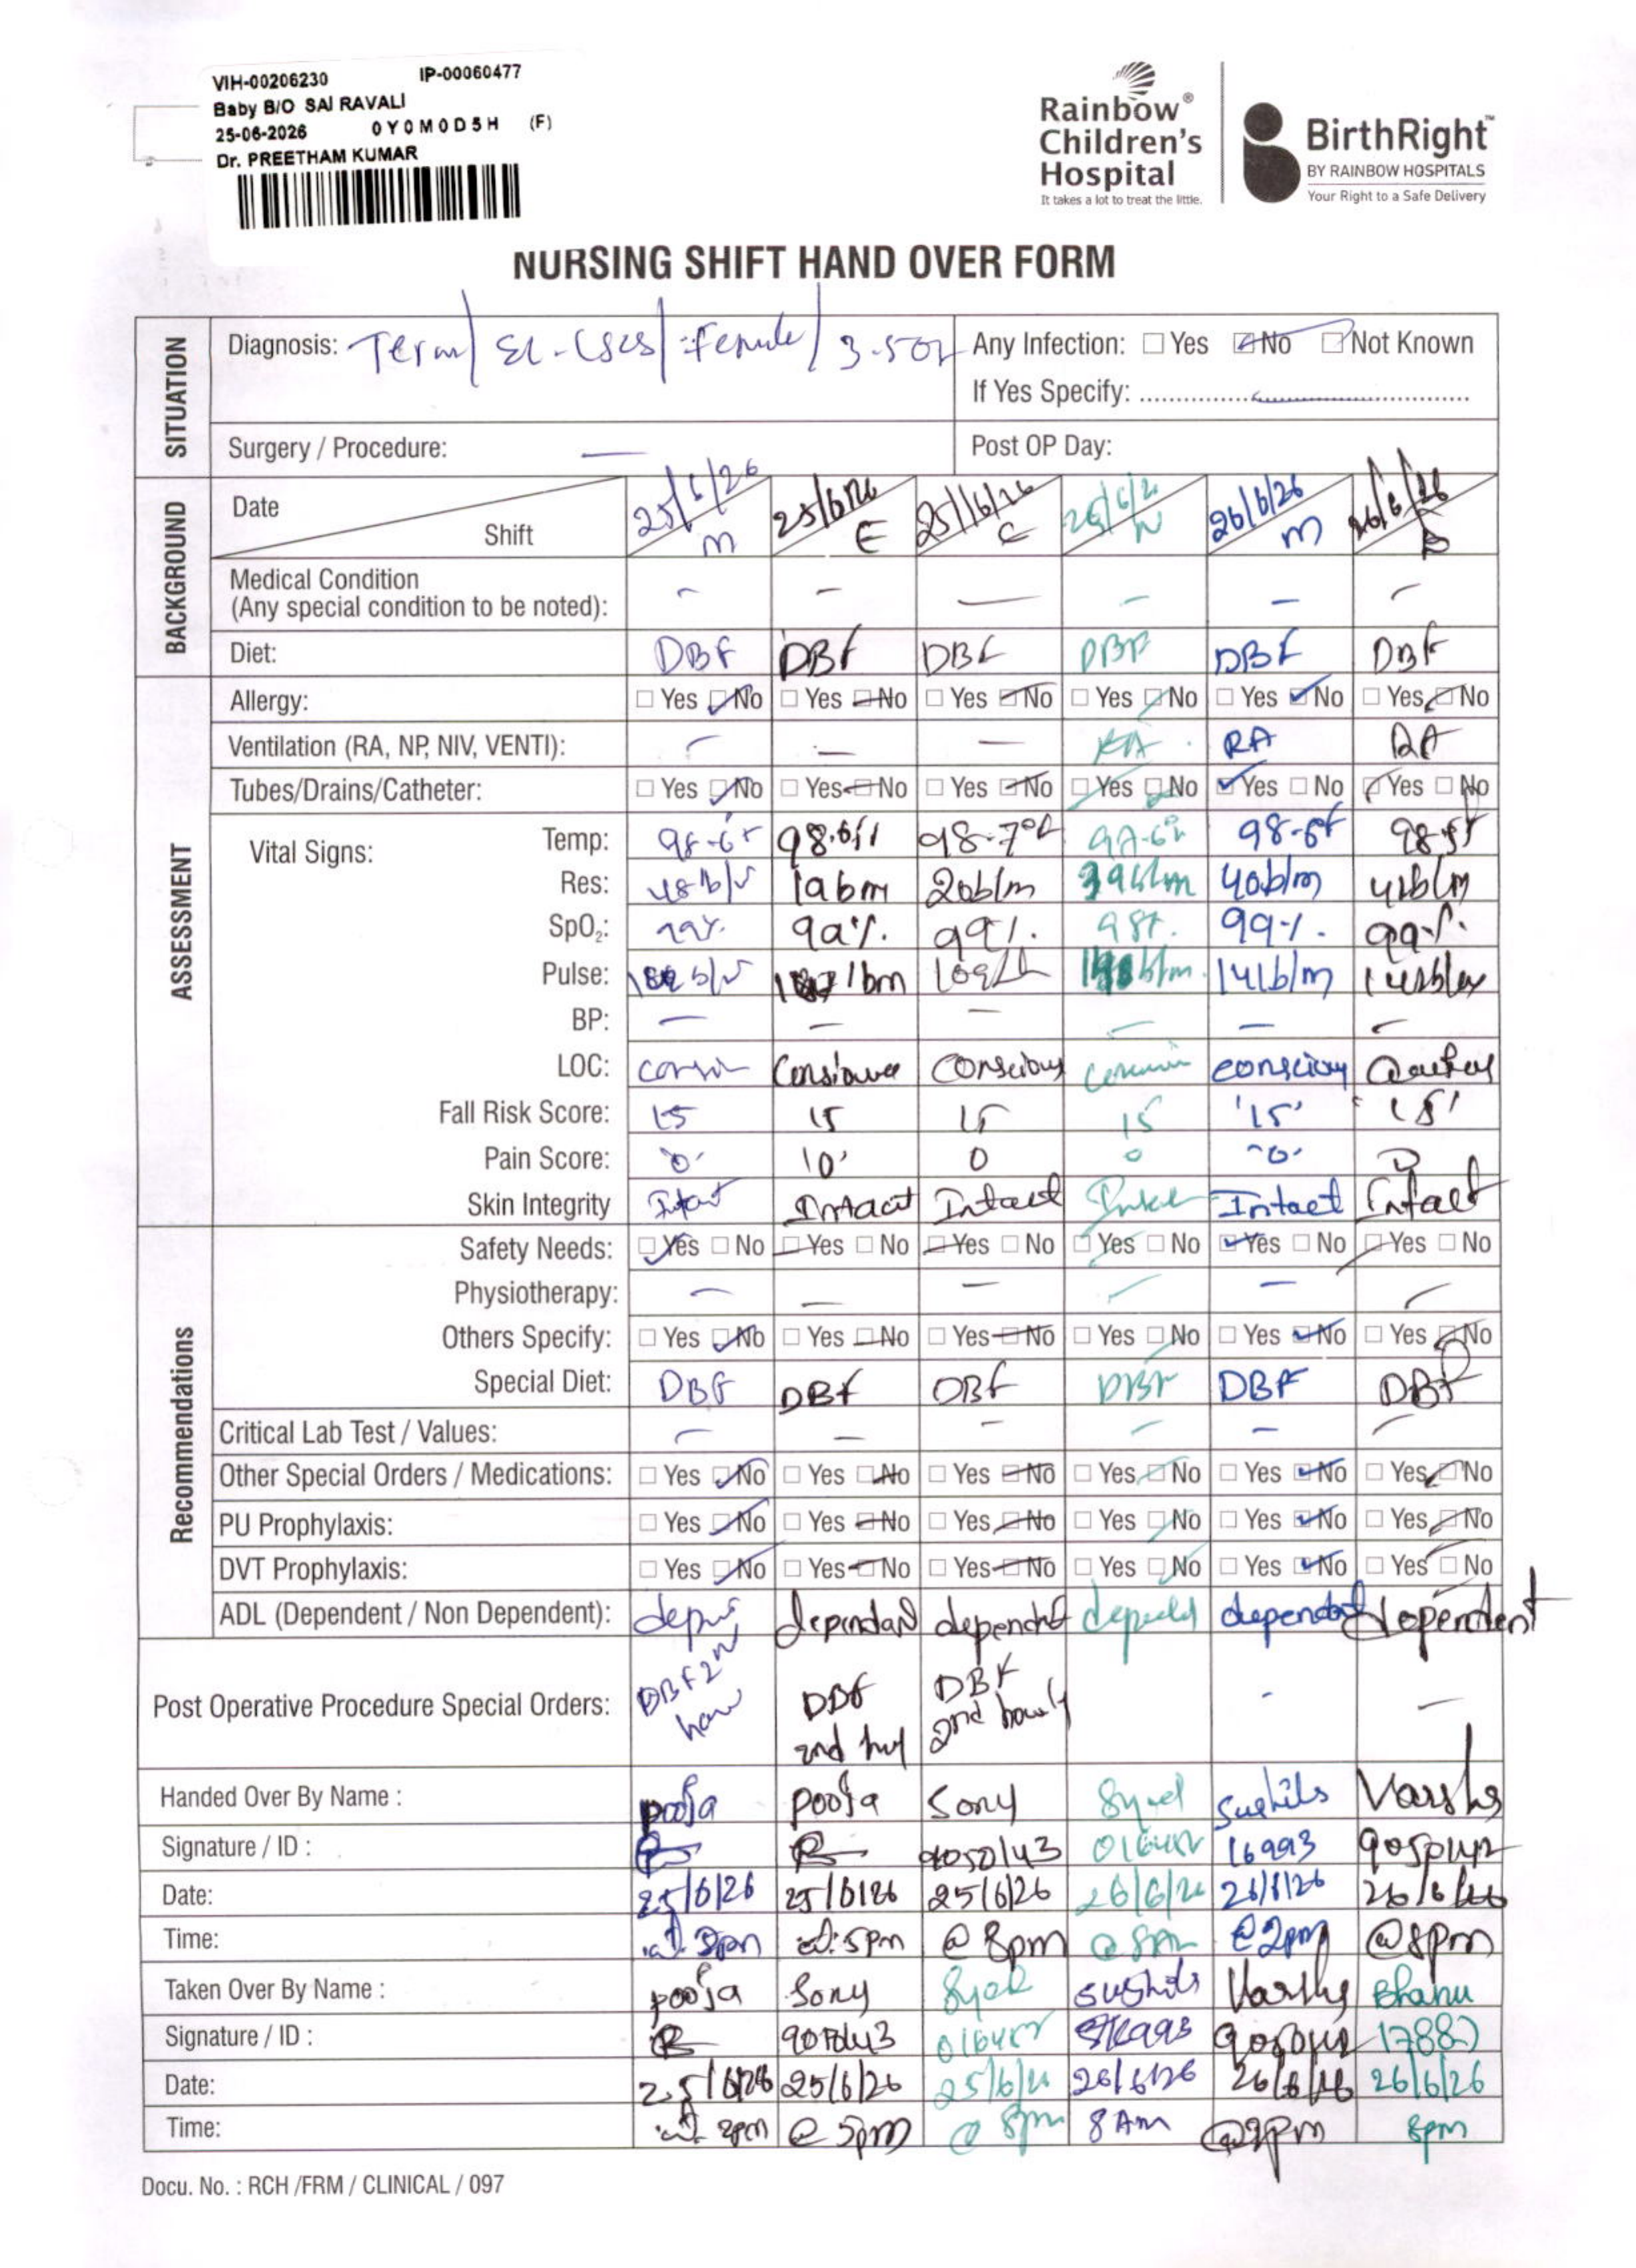 VIH-00206230 IP-00060477
Baby B/O SAI RAVALI
25-06-2026 0Y0M0D5H (F)
Dr. PREETHAM KUMAR
Rainbow®
Children's
Hospital
It takes a lot to treat the little.
BirthRight™
BY RAINBOW HOSPITALS
Your Right to a Safe Delivery
NURSING SHIFT HAND OVER FORM
SITUATION
Diagnosis: Term/ El-LSCS/ Female/ Any Infection: Yes No Not Known
If Yes Specify:
Surgery / Procedure: — Post OP Day:
BACKGROUND
Date 25/6/26 25/6/26 25/6/26 26/6/26
Shift M E N M
Medical Condition
(Any special condition to be noted): - - - - - -
Diet: DBF DBF DBF DBF DBF DBF
ASSESSMENT
Allergy: Yes No Yes No Yes No Yes No Yes No Yes No
Ventilation (RA, NP, NIV, VENTI): - - - RA RA RA
Tubes/Drains/Catheter: Yes No Yes No Yes No Yes No Yes No Yes No
Vital Signs: Temp: 98.6f 98.6f 98.7°f 98.6f
Res: 48b/m 20b/m 40b/m
SpO₂: 99% 99% 99% 98% 99% 99%
Pulse: 141b/m
BP: - - - - - -
LOC: Conscious conscious
Fall Risk Score: 15 15 15 15 '15' '15'
Pain Score: '0' '0' 0 0 '0' 0
Skin Integrity Intact Intact Intact Intact Intact Intact
Recommendations
Safety Needs: Yes No Yes No Yes No Yes No Yes No Yes No
Physiotherapy: - - - - - -
Others Specify: Yes No Yes No Yes No Yes No Yes No Yes No
Special Diet: DBF DBF DBF DBF DBF DBF
Critical Lab Test / Values: - - - - - -
Other Special Orders / Medications: Yes No Yes No Yes No Yes No Yes No Yes No
PU Prophylaxis: Yes No Yes No Yes No Yes No Yes No Yes No
DVT Prophylaxis: Yes No Yes No Yes No Yes No Yes No Yes No
ADL (Dependent / Non Dependent): dependent dependent dependent
Post Operative Procedure Special Orders: DBF 2nd DBF 2nd DBF 2nd hourly - -
Handed Over By Name : pooja pooja Sony Varsha
Signature / ID : 16993
Date: 25/6/26 25/6/26 25/6/26 26/6/26 26/6/26 26/6/26
Time: at 2pm at 5pm @ 8pm @ 8AM @2pm @8pm
Taken Over By Name : pooja Sony Bhanu
Signature / ID :
Date: 25/6/26 25/6/26 25/6/26 26/6/26 26/6/26 26/6/26
Time: at 2pm @ 5pm @ 8pm 8 Am @2pm 8pm
Docu. No. : RCH /FRM / CLINICAL / 097